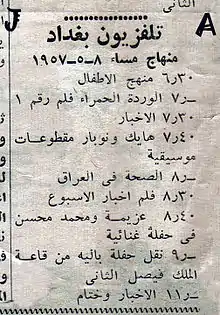 الثانى
J
A
تلفزيون بغداد
منهاج مساء ٨-٥-١٩٥٧
٦٫٣٠ منهج الاطفال
٧٫- الوردة الحمراء فلم رقم ١
٧٫٣٠ الاخبار
٧٫٤٠ هايك ونوبار مقطوعات
موسيقية
٨٫- الصحة فى العراق
٨٫٣٠ فلم اخبار الاسبوع
٨٫٤٠ عزيمة ومحمد محسن
فى حفلة غنائية
٩٫- نقل حفلة باليه من قاعة
الملك فيصل الثانى
١١٫- الاخبار وختام